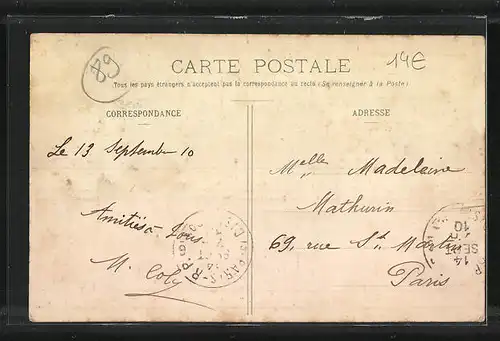 89
14€
CARTE POSTALE
Tous les pays étrangers n'acceptent pas la correspondance au recto (Se renseigner à la Poste)
CORRESPONDANCE
Le 13 Septembre 10
Amitiés à tous
M. Coly
ADRESSE
Melle Madeleine
Mathurin
69, rue St. Martin
Paris
PARIS R.P.
14
SEPT
10